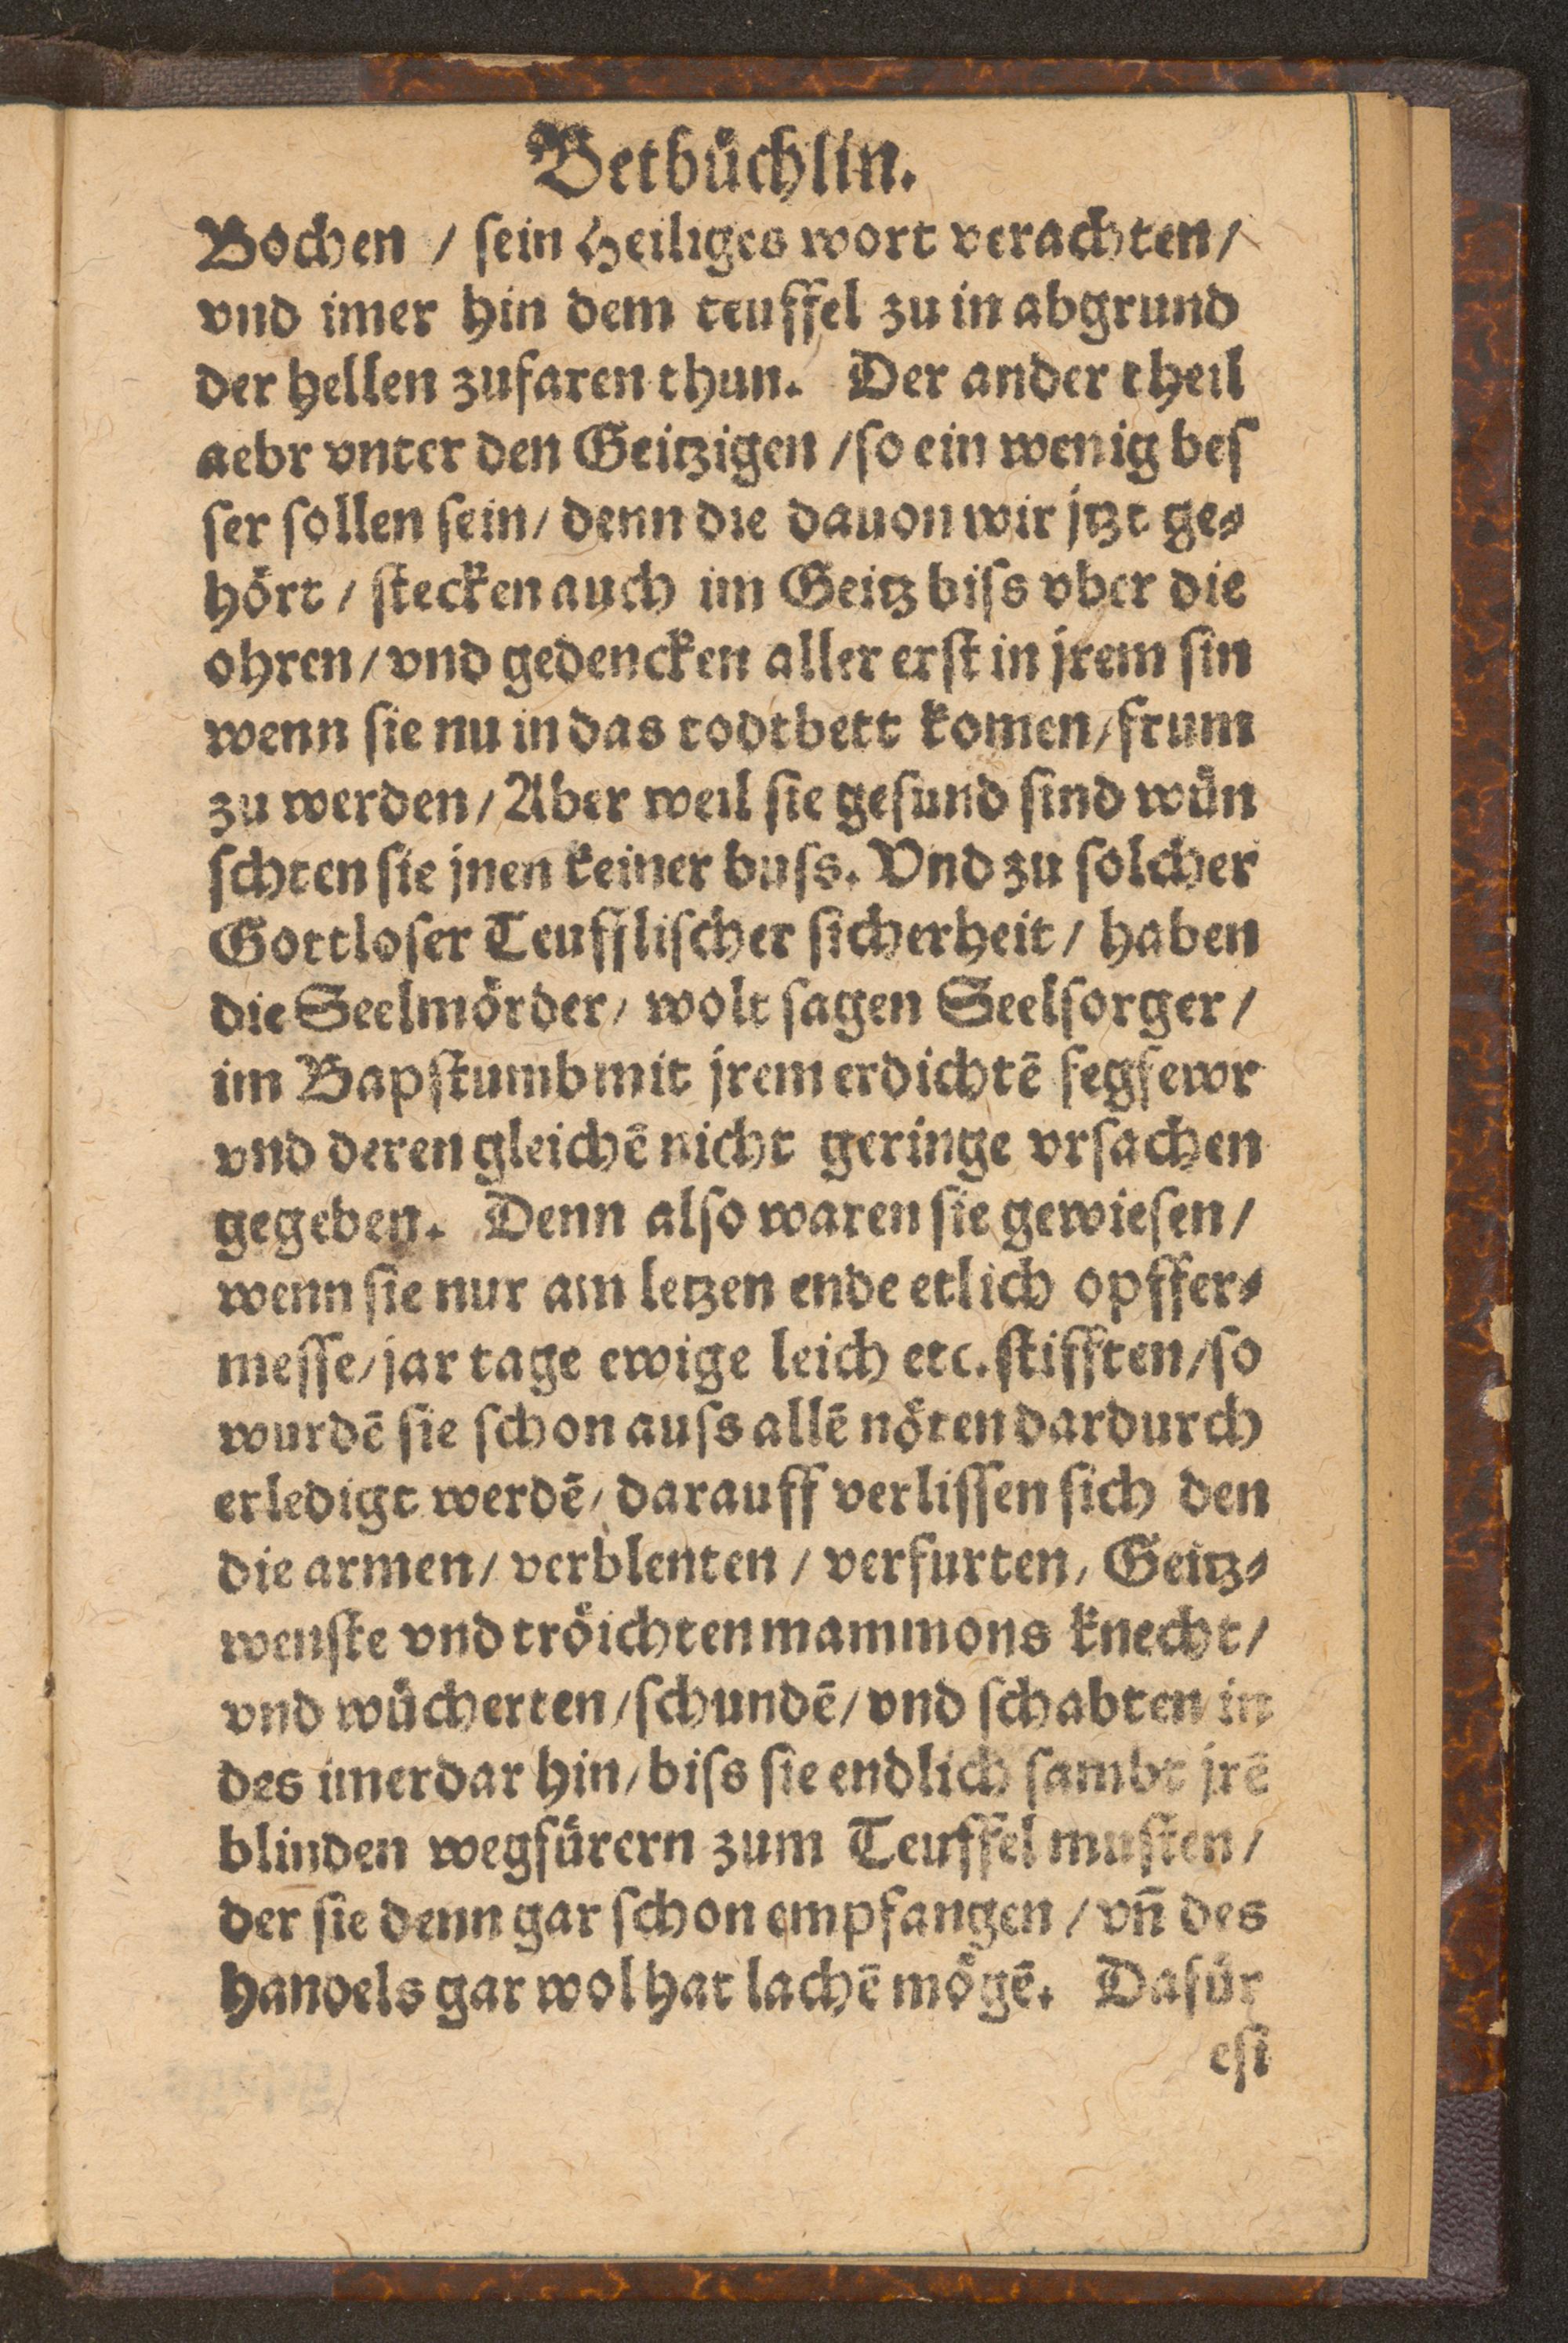 Betbuͤchlin.
Bochen / sein Heiliges wort verachten /
vnd imer hin dem teuffel zu in abgrund
der hellen zufaren thun. Der ander theil
aebr vnter den Geitzigen / so ein wenig bes
ser sollen sein / denn die dauon wir jtzt ge⸗
hoͤrt / stecken auch im Geitz biss vber die
ohren / vnd gedencken aller erst in jrem sin
wenn sie nu in das todtbett komen / frum
zu werden / Aber weil sie gesund sind wuͤn
schten sie jnen keiner buss. Vnd zu solcher
Gottloser Teufflischer sicherheit / haben
die Seelmoͤrder / wolt sagen Seelsorger /
im Bapstumb mit jrem erdichtē fegfewr
vnd deren gleichē nicht geringe vrsachen
gegeben. Denn also waren sie gewiesen /
wenn sie nur am letzen ende etlich opffer⸗
messe / jar tage ewige leich etc. stifften / so
wurdē sie schon auss allē noͤten dardurch
erledigt werdē / darauff verlissen sich den
die armen / verblenten / verfurten / Geitz⸗
wenste vnd troͤichten mammons knecht /
vnd wuͤcherten / schundē / vnd schabten in
des imerdar hin / biss sie endlich sambt jrē
blinden wegfuͤrern zum Teuffel musten /
der sie denn gar schon empfangen / vn̄ des
handels gar wol hat lachē moͤgē. Dafuͤr
esi